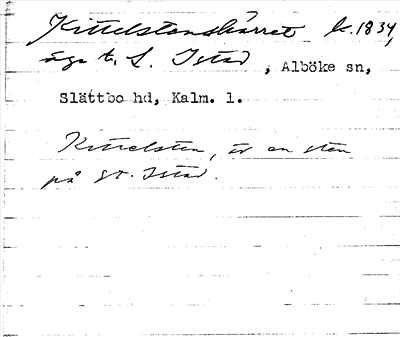 Kittelstenskärret k. 1834,
äga t. S. Istad, Alböke sn,
Slättbo hd, Kalm. l.
Kittelsten, är en sten
på St. Istad.